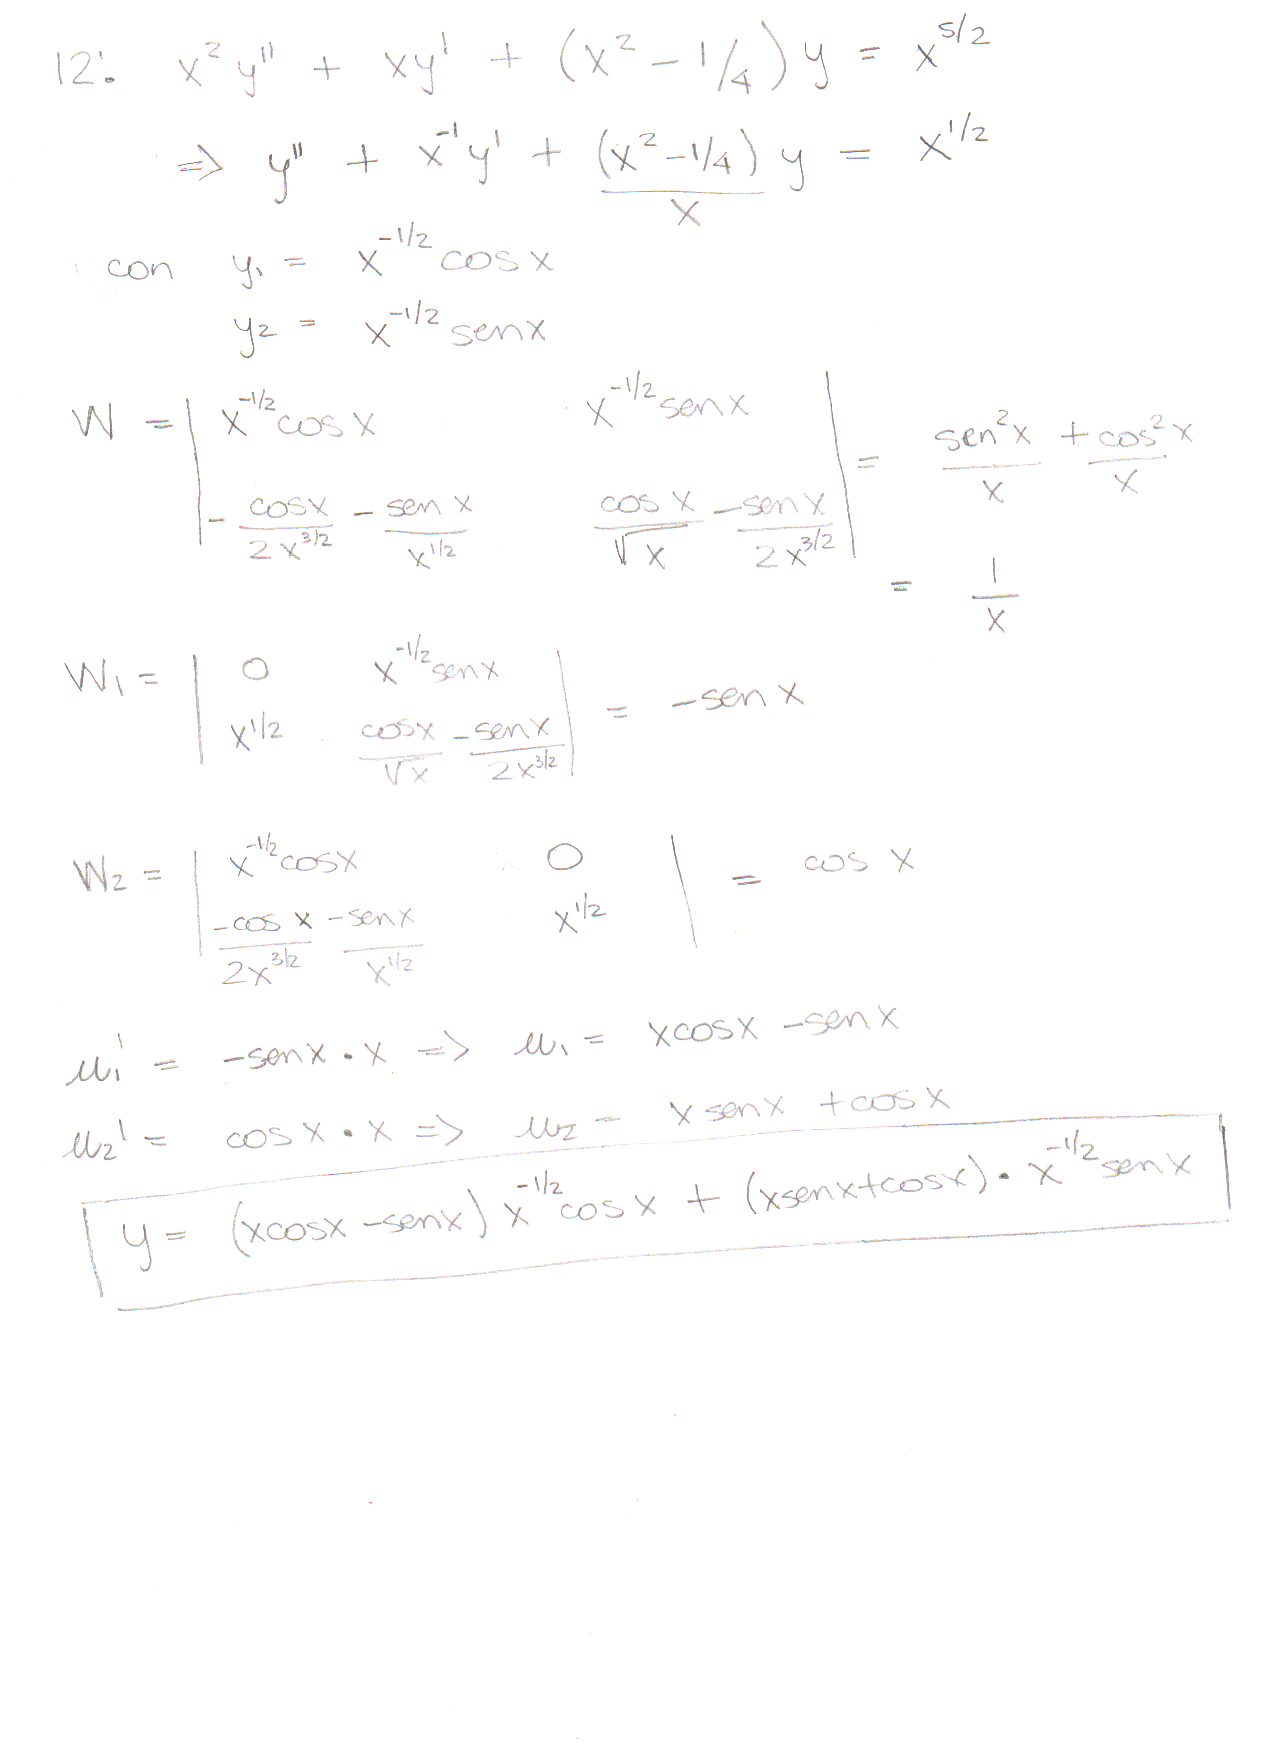 12: x² y'' + xy' + (x² - 1/4) y = x^{5/2}
=> y'' + x^{-1} y' + (x² - 1/4)/x y = x^{1/2}
con y₁ = x^{-1/2} cos x
y₂ = x^{-1/2} sen x
W = | x^{-1/2} cos x    x^{-1/2} sen x ; - cos x/2x^{3/2} - sen x/x^{1/2}    cos x/√x - sen x/2x^{3/2} | = sen²x/x + cos²x/x
= 1/x
W₁ = | 0    x^{-1/2} sen x ; x^{1/2}    cos x/√x - sen x/2x^{3/2} | = -sen x
W₂ = | x^{-1/2} cos x    0 ; -cos x/2x^{3/2} - sen x/x^{1/2}    x^{1/2} | = cos x
u₁' = -sen x · x => u₁ = x cos x - sen x
u₂' = cos x · x => u₂ = x sen x + cos x
y = (x cos x - sen x) x^{-1/2} cos x + (x sen x + cos x) · x^{-1/2} sen x